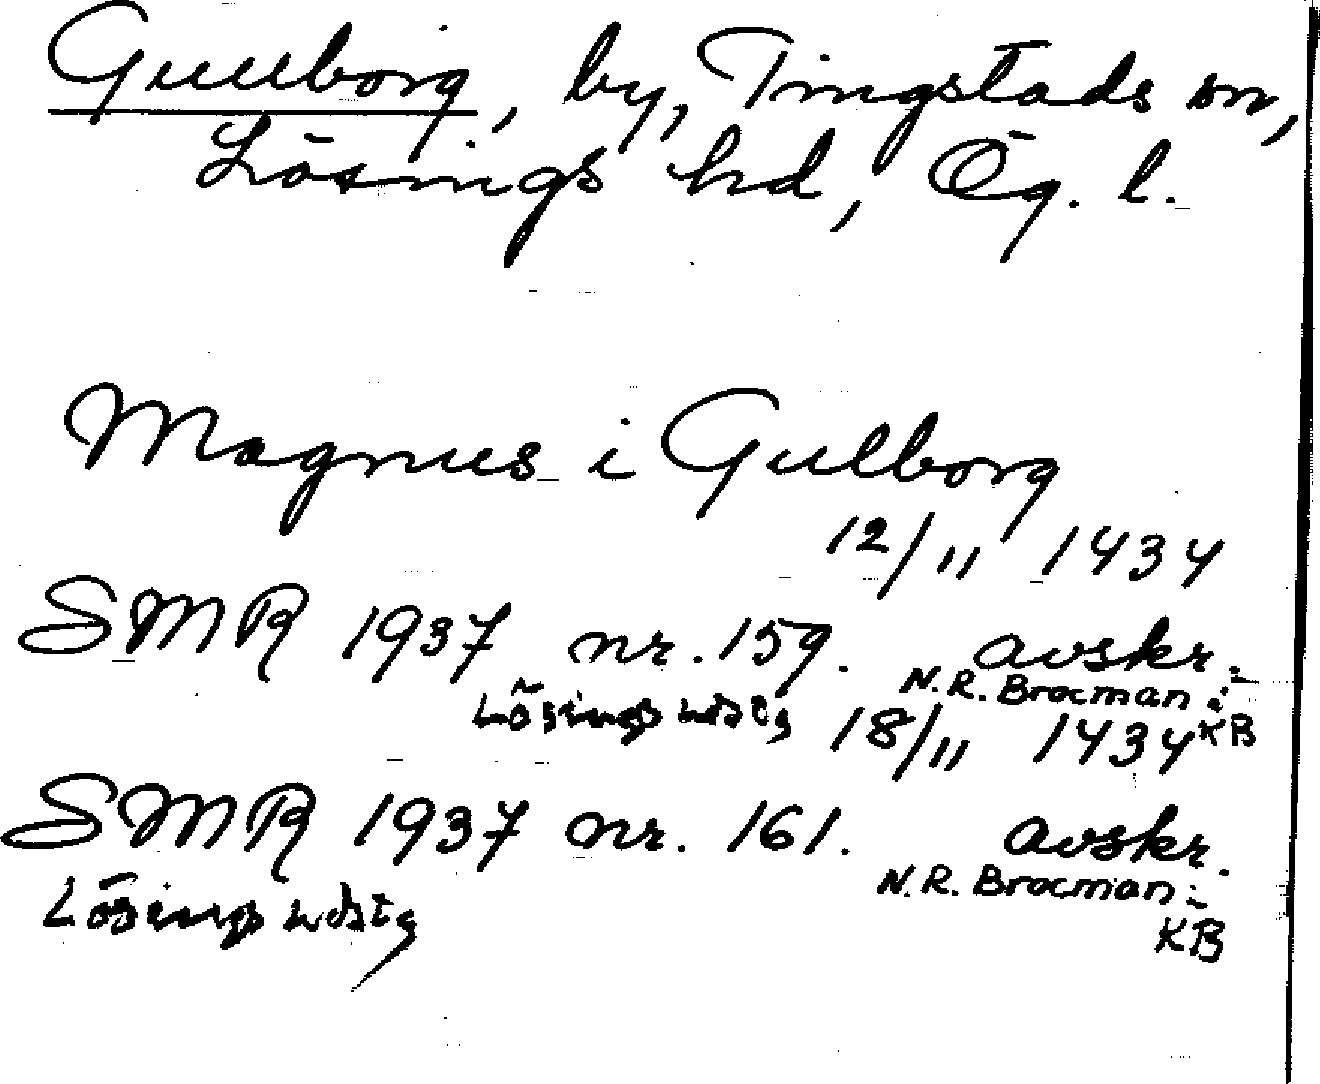 Gullborg, by, Tingstads sn,
Lösings hd, Ög. l.
Magnus i Gulborg
12/11 1434
SMR 1937 nr. 159. avskr.:
N.R. Brocman:
Lösings hdstg 18/11 1434 KB
SMR 1937 nr. 161. avskr.
N.R. Brocman:
Lösings hdstg
KB